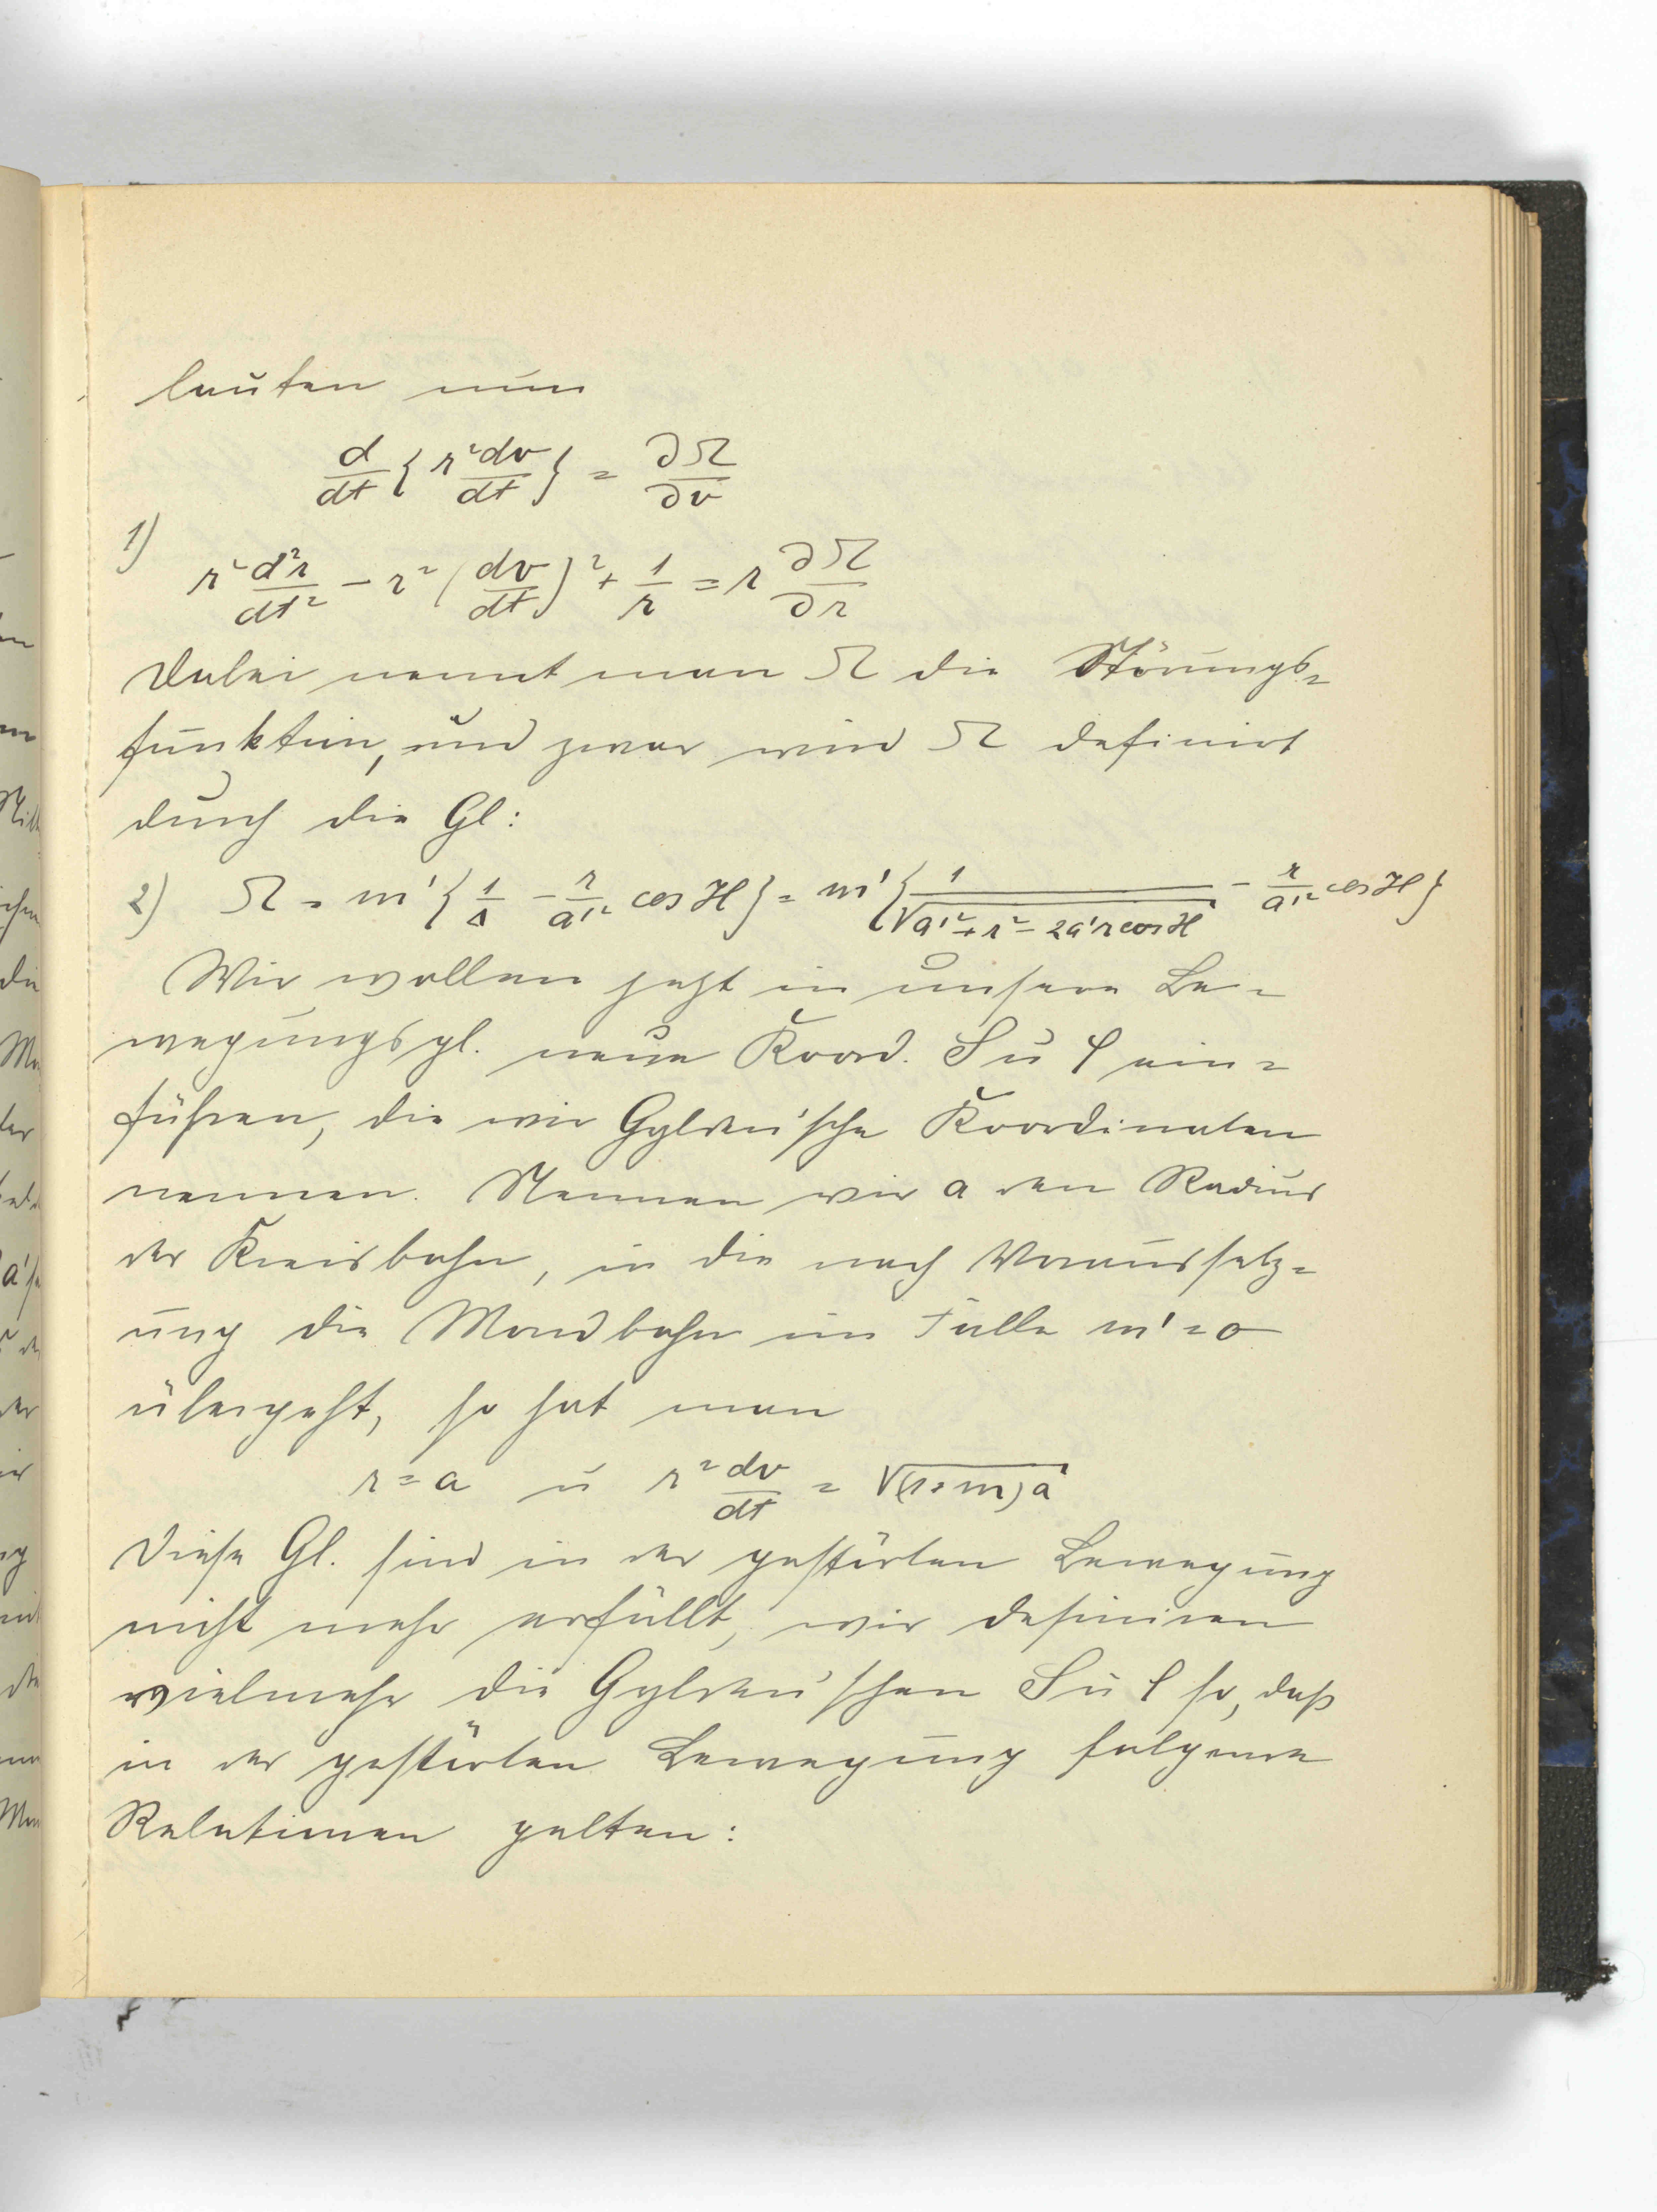 lauten nun
d/dt { r² dv/dt } = ∂Ω/∂v
1)
r² d²r/dt² - r² ( dv/dt )² + 1/r = r ∂Ω/∂r
Dabei nennt man Ω die Störungs=
funktion, und zwar wird Ω definirt
durch die Gl:
2) Ω = m' { 1/Δ - r/a'² cos H } = m' { 1/√(a'² + r² - 2a'r cos H) - r/a'² cos H }
Wir wollen jetzt in unsere Be=
wegungsgl. neue Koord. S u ρ ein=
führen, die wir Gyldén'sche Koordinaten
nennen. Nennen wir a den Radius
der Kreisbahn, in die nach Voraussetz=
ung die Mondbahn im Falle m' = 0
übergeht, so hat man
r = a u r² dv/dt = √(1+m)a
Diese Gl. sind in der gestörten Bewegung
nicht mehr erfüllt, wir definiren
vielmehr die Gyldén'schen S u ρ so, daß
in der gestörten Bewegung folgende
Relationen gelten: